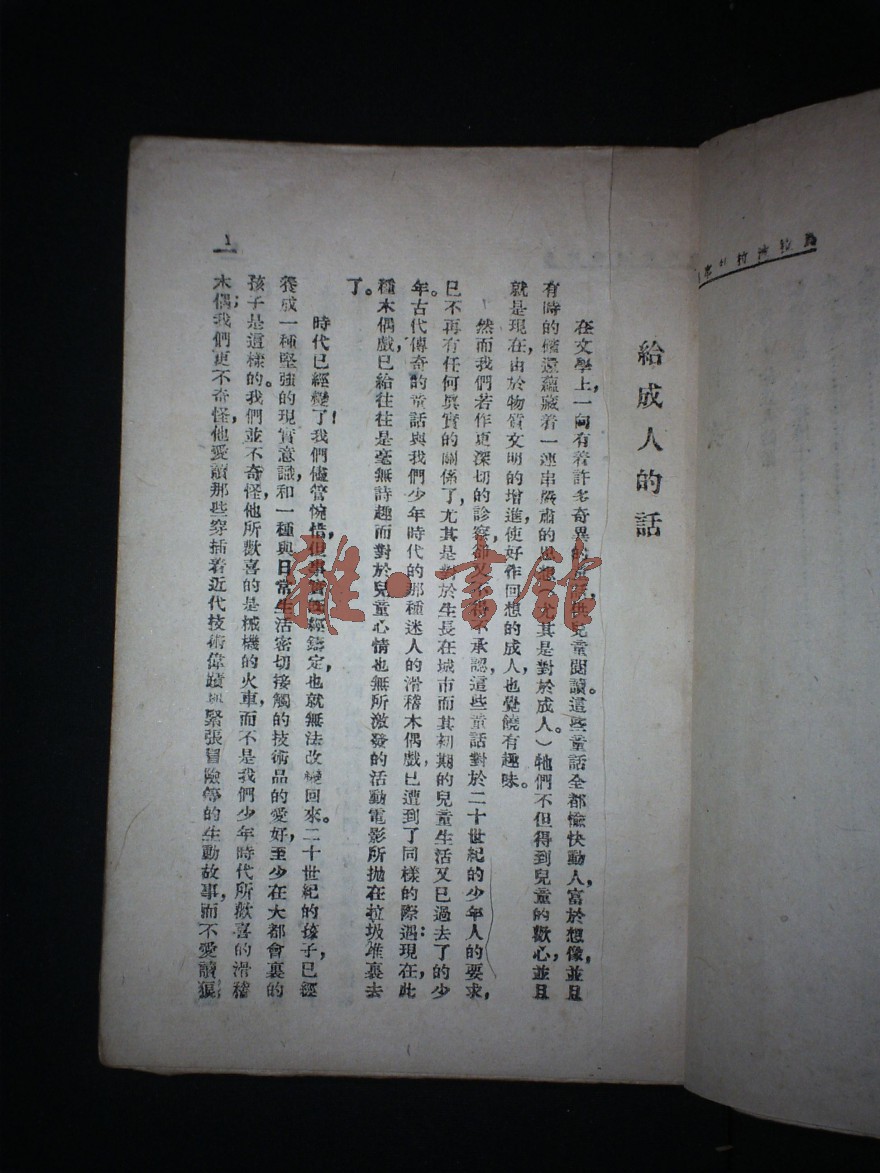 給成人的話
在文學上,一向有着許多奇異的,供兒童閱讀。這些童話全都愉快動人,富於想像,並且
有時的儘還蘊藏着一連串嚴肅的思想(尤其是對於成人。)牠們不但得到兒童的歡心,並且
就是現在,由於物質文明的增進,使好作回想的成人,也覺饒有趣味。
然而我們若作更深切的診察,卻又不得不承認,這些童話對於二十世紀的少年人的要求,
已不再有任何眞實的關係了,尤其是對於生長在城市而其初期的兒童生活又已過去了的少
年。古代傳奇的童話與我們少年時代的那種迷人的滑稽木偶戲,已遭到了同樣的際遇:現在,此
種木偶戲,已給往往是毫無詩趣而對於兒童心情也無所激發的活動電影所拋在垃圾堆裏去
了。
時代已經變了!我們儘管惋惜,但事實已經鑄定,也就無法改變回來。二十世紀的孩子,已經
養成一種堅強的現實意識,和一種與日常生活密切接觸的技術品的愛好,至少在大都會裏的
孩子是這樣的。我們並不奇怪,他所歡喜的是機械的火車,而不是我們少年時代所歡喜的滑稽
木偶;我們更不奇怪,他愛讀那些穿插着近代技術偉蹟與緊張冒險等的生動故事,而不愛讀狼
1
雜·書館